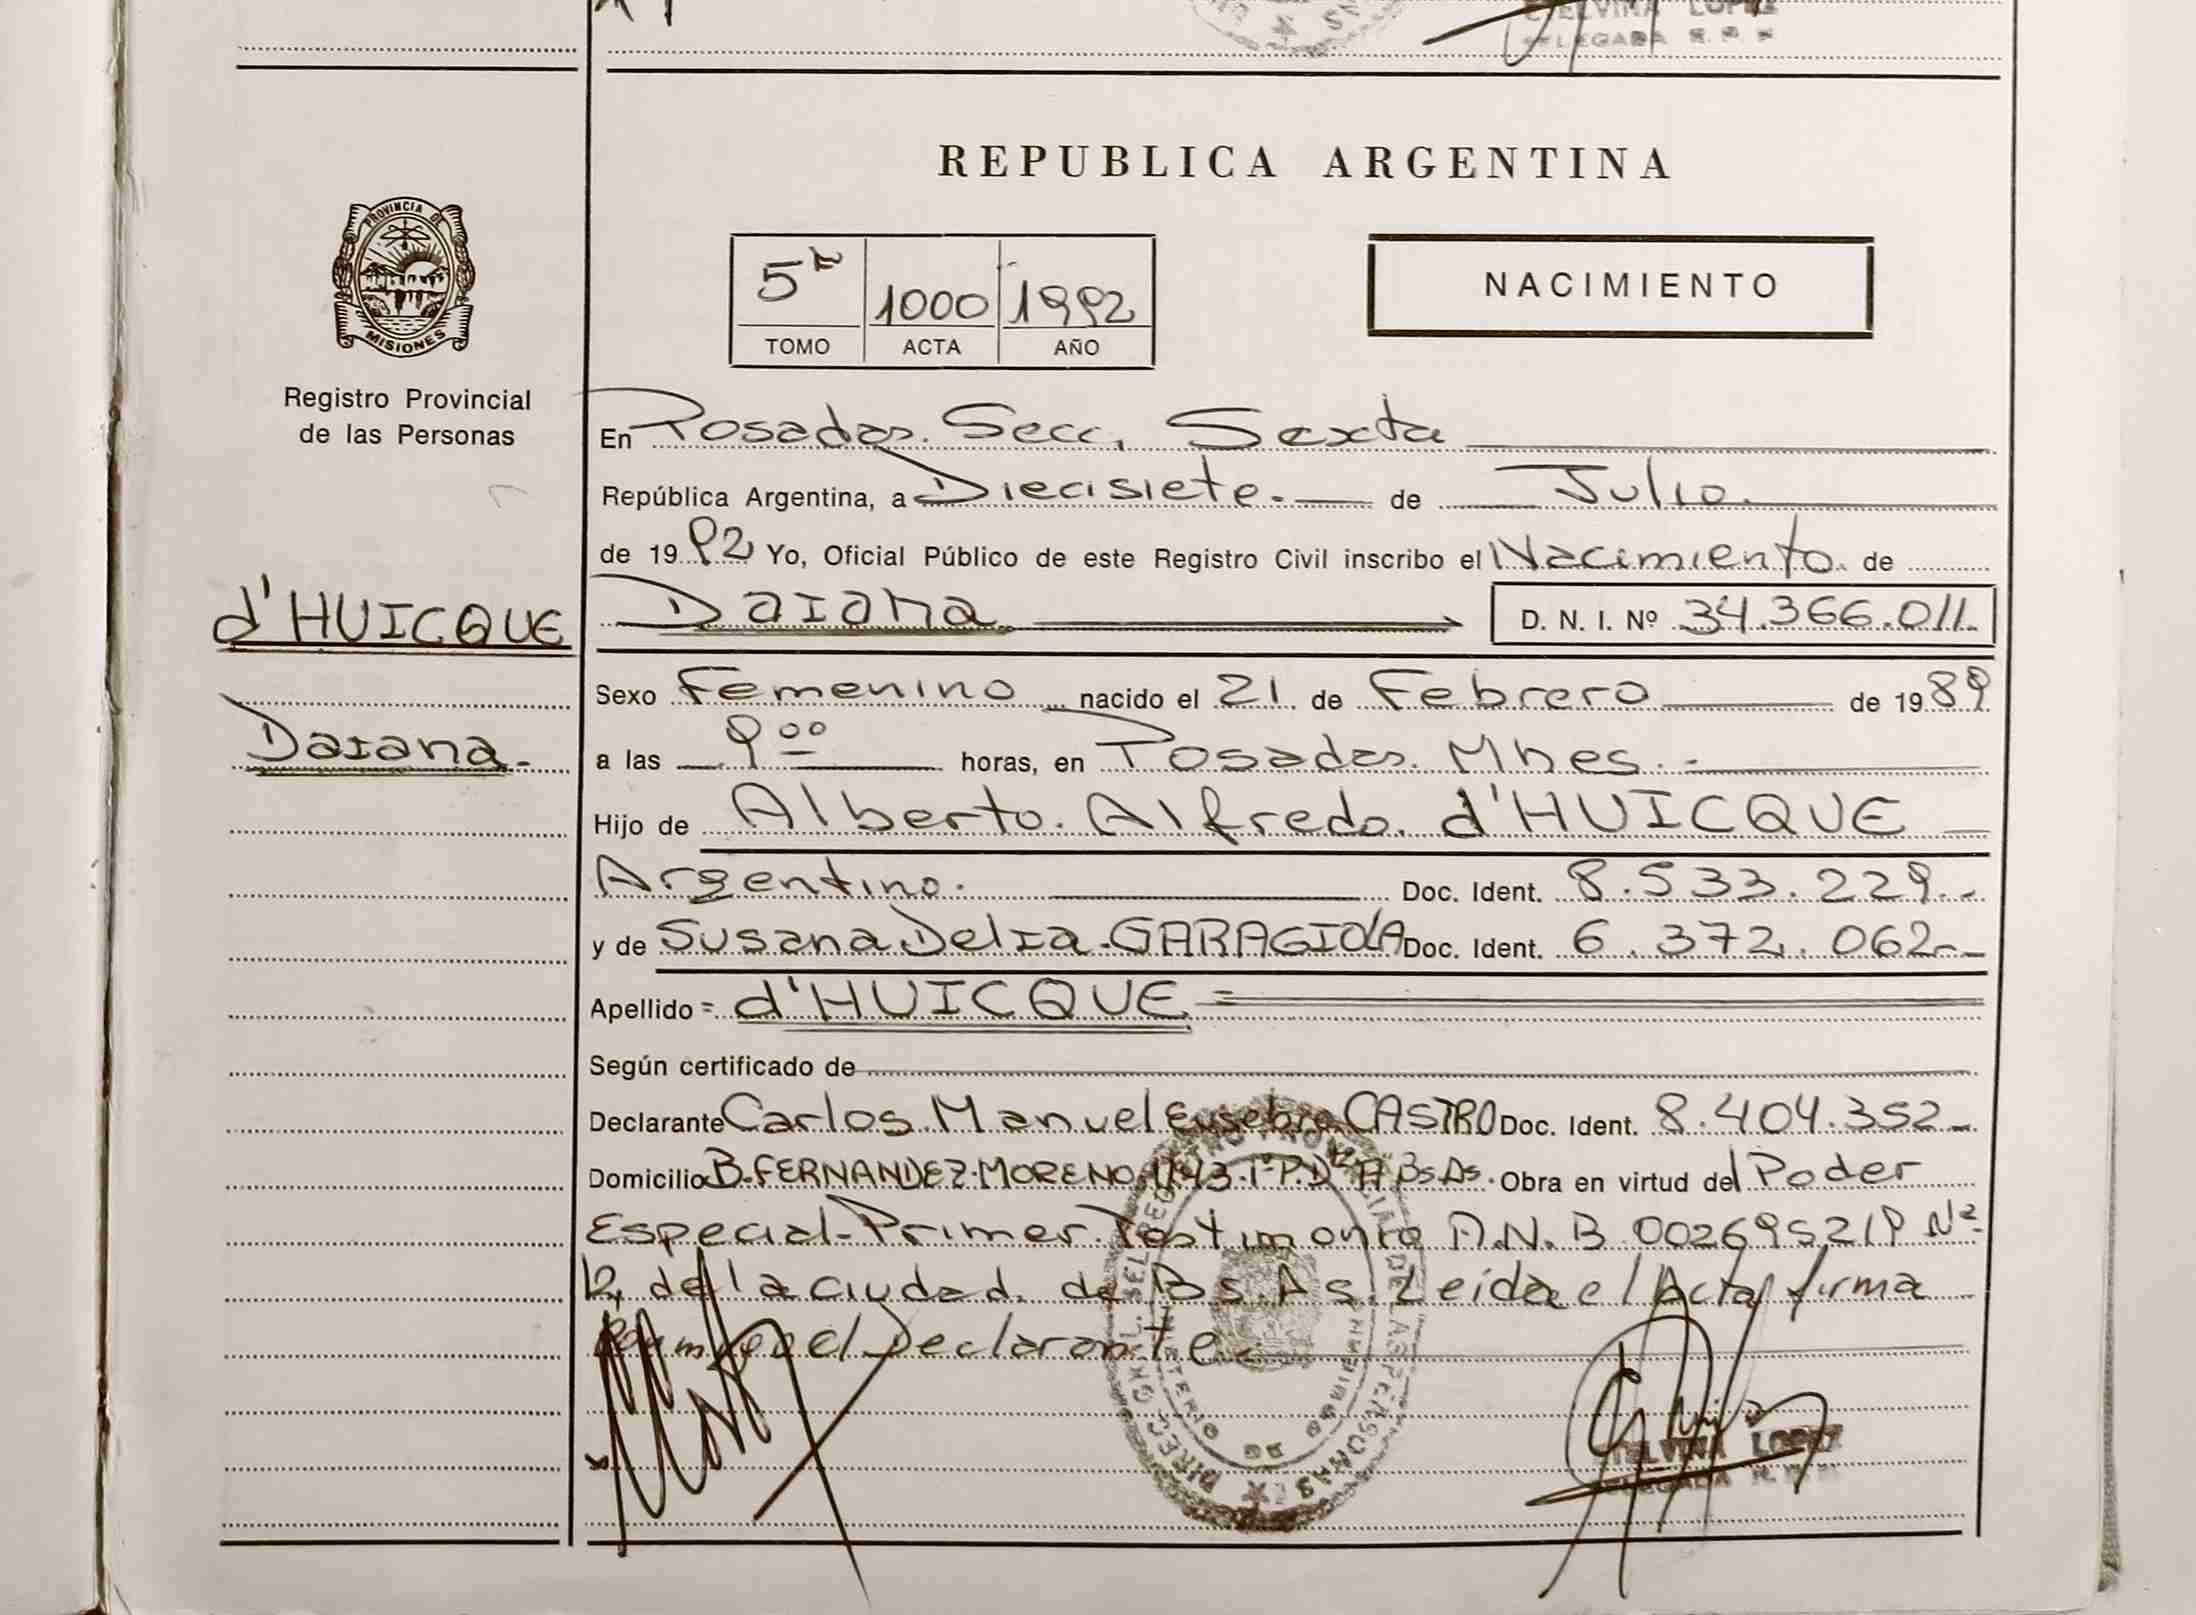 ETELVINA LOPEZ
DELEGADA R. P. P.
REPUBLICA ARGENTINA
PROVINCIA DE
MISIONES
Registro Provincial
de las Personas
5º 1000 1992
TOMO ACTA AÑO
NACIMIENTO
d'HUICQUE
Daiana.
En Posadas. Secc. Sexta
República Argentina, a Diecisiete. de Julio.
de 1992 Yo, Oficial Público de este Registro Civil inscribo el Nacimiento. de
Daiana D. N. I. Nº 34.366.011.
Sexo Femenino nacido el 21 de Febrero de 1989
a las 9 00 horas, en Posadas. Mnes.
Hijo de Alberto. Alfredo. d'HUICQUE
Argentino. Doc. Ident. 8.533.229.
y de Susana Delia. GARAGIOLA Doc. Ident. 6.372.062
Apellido = d'HUICQUE =
Según certificado de
Declarante Carlos. Manuel Eusebio CASTRO Doc. Ident. 8.404.352
Domicilio B. FERNANDEZ. MORENO 1743. 1º P. Dº "A" Bs As. Obra en virtud del Poder
Especial-Primer. Testimonio A.N.B. 002695219 Nº
12, de la ciudad. de Bs. As. Leida el Acta, firma
conmigo el Declarante.
ETELVINA LOPEZ
DELEGADA R. P. P.